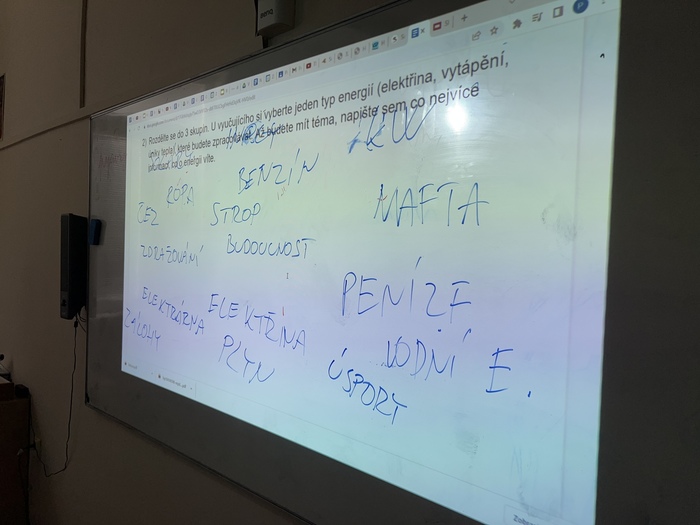 2) Rozdělte se do 3 skupin. U vyučujícího si vyberte jeden typ energií (elektřina, vytápění,
úniky tepla), které budete zpracovávat. Až budete mít téma, napište sem co nejvíce
energii víte.
KW
BENZÍN
ROPA
ČEZ
STROP
MAFTA
ZDRAŽOVÁNÍ
BUDOUCNOST
PENÍZE
ELEKTRÁRNA
ELEKTŘINA
ZÁLOHY
PLYN
VODNÍ E.
ÚSPORY